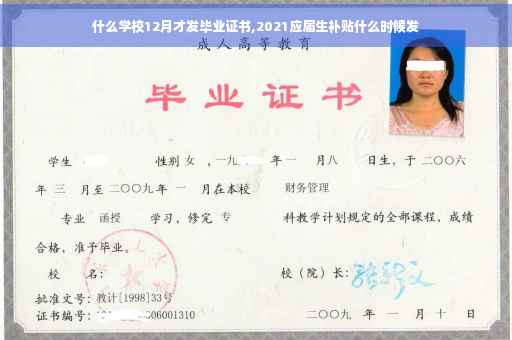 什么学校12月才发毕业证书,2021应届生补贴什么时候发
成人高等教育
毕业证书
学生 性别 女 ，一九 年 一 月八 日生，于 二〇〇六
年 三 月至 二〇〇九 年 一 月在本校 财务管理
专业 函授 学习，修完 专 科教学计划规定的全部课程，成绩
合格，准予毕业。
校 名： 校（院）长：
批准文号：教计[1998]33号
证书编号： 06001310 二〇〇九 年 一 月 十 日